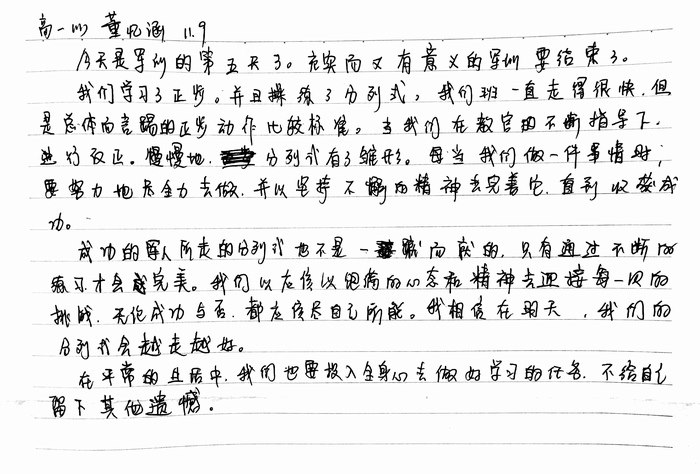 高一(1) 董忆涵 11.9
今天是军训的第五天了。充实而又有意义的军训要结束了。
我们学习了正步。并且操练了分列式，我们班一直走得很快，但
是总体而言踢的正步动作比较标准。当我们在教官的不断指导下，
进行改正。慢慢地，分列式有了雏形。每当我们做一件事情时，
要努力地尽全力去做，并以坚持不懈的精神去完善它，直到收获成
功。
成功的军人所走的分列式也不是一蹴而就的，只有通过不断的
练习才会成完美。我们以应该以饱满的心态和精神去迎接每一次的
挑战，无论成功与否，都应该尽自己所能。我相信在明天，我们的
分列式会越走越好。
在平常的生活中，我们也要投入全身心去做好学习的任务，不给自己
留下其他遗憾。